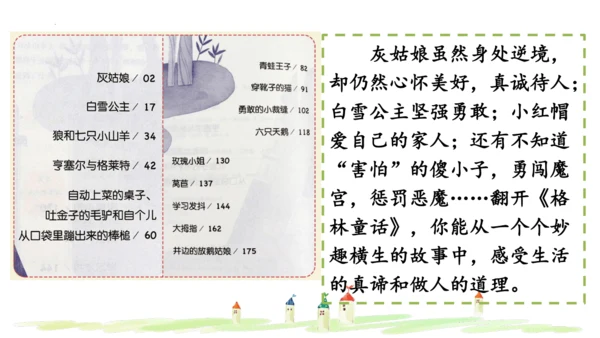 灰姑娘 / 02
白雪公主 / 17
狼和七只小山羊 / 34
亨塞尔与格莱特 / 42
自动上菜的桌子、
吐金子的毛驴和自个儿
从口袋里蹦出来的棒槌 / 60
青蛙王子 / 82
穿靴子的猫 / 91
勇敢的小裁缝 / 102
六只天鹅 / 118
玫瑰小姐 / 130
莴苣 / 137
学习发抖 / 144
大拇指 / 162
井边的放鹅姑娘 / 175
灰姑娘虽然身处逆境，
却仍然心怀美好，真诚待人；
白雪公主坚强勇敢；小红帽
爱自己的家人；还有不知道
“害怕”的傻小子，勇闯魔
宫，惩罚恶魔……翻开《格
林童话》，你能从一个个妙
趣横生的故事中，感受生活
的真谛和做人的道理。